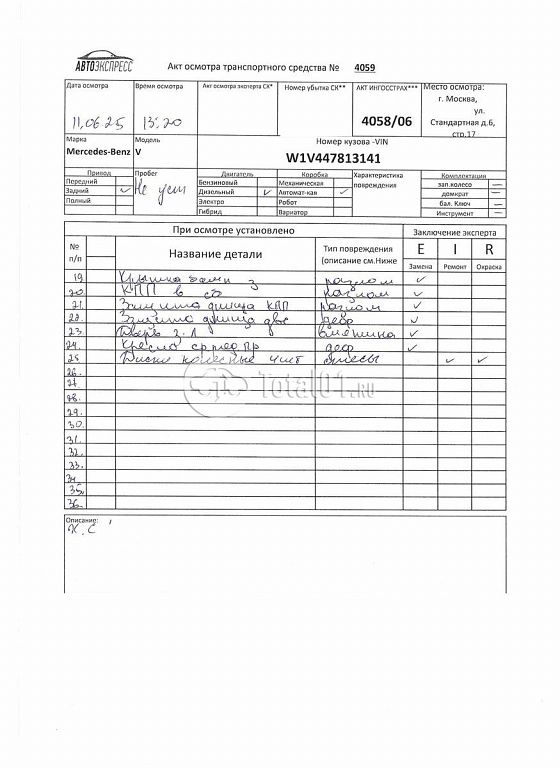 АВТОЭКСПРЕСС
Акт осмотра транспортного средства № 4059
Дата осмотра
11.06.25
Время осмотра
13:20
Акт осмотра эксперта СК*
Номер убытка СК**
АКТ ИНГОССТРАХ***
4058/06
Место осмотра:
г. Москва,
ул.
Стандартная д.6,
стр.17
Марка
Mercedes-Benz
Модель
V
Номер кузова -VIN
W1V447813141
Привод
Передний
Задний ✓
Полный
Пробег
Не уст
Двигатель
Бензиновый
Дизельный ✓
Электро
Гибрид
Коробка
Механическая
Автомат-кая ✓
Робот
Вариатор
Характеристика
повреждения
Комплектация
зап.колесо —
домкрат —
бал. Ключ —
Инструмент —
При осмотре установлено
Заключение эксперта
№
п/п
Название детали
Тип повреждения
(описание см.Ниже
E I R
Замена Ремонт Окраска
19. Крышка З разлом ✓
20. КПП в сб разлом ✓
21. Защита днища КПП разлом ✓
22. Защита днища двс деф ✓
23. Дверь з.л вмятина ✓
24. Кресло ср ряд пр деф ✓
25 Диски колесные 4шт ✓ ✓
26.
27.
28.
29.
30.
31.
32.
33.
34
35.
36.
Total01.RU
Описание:
Х.С